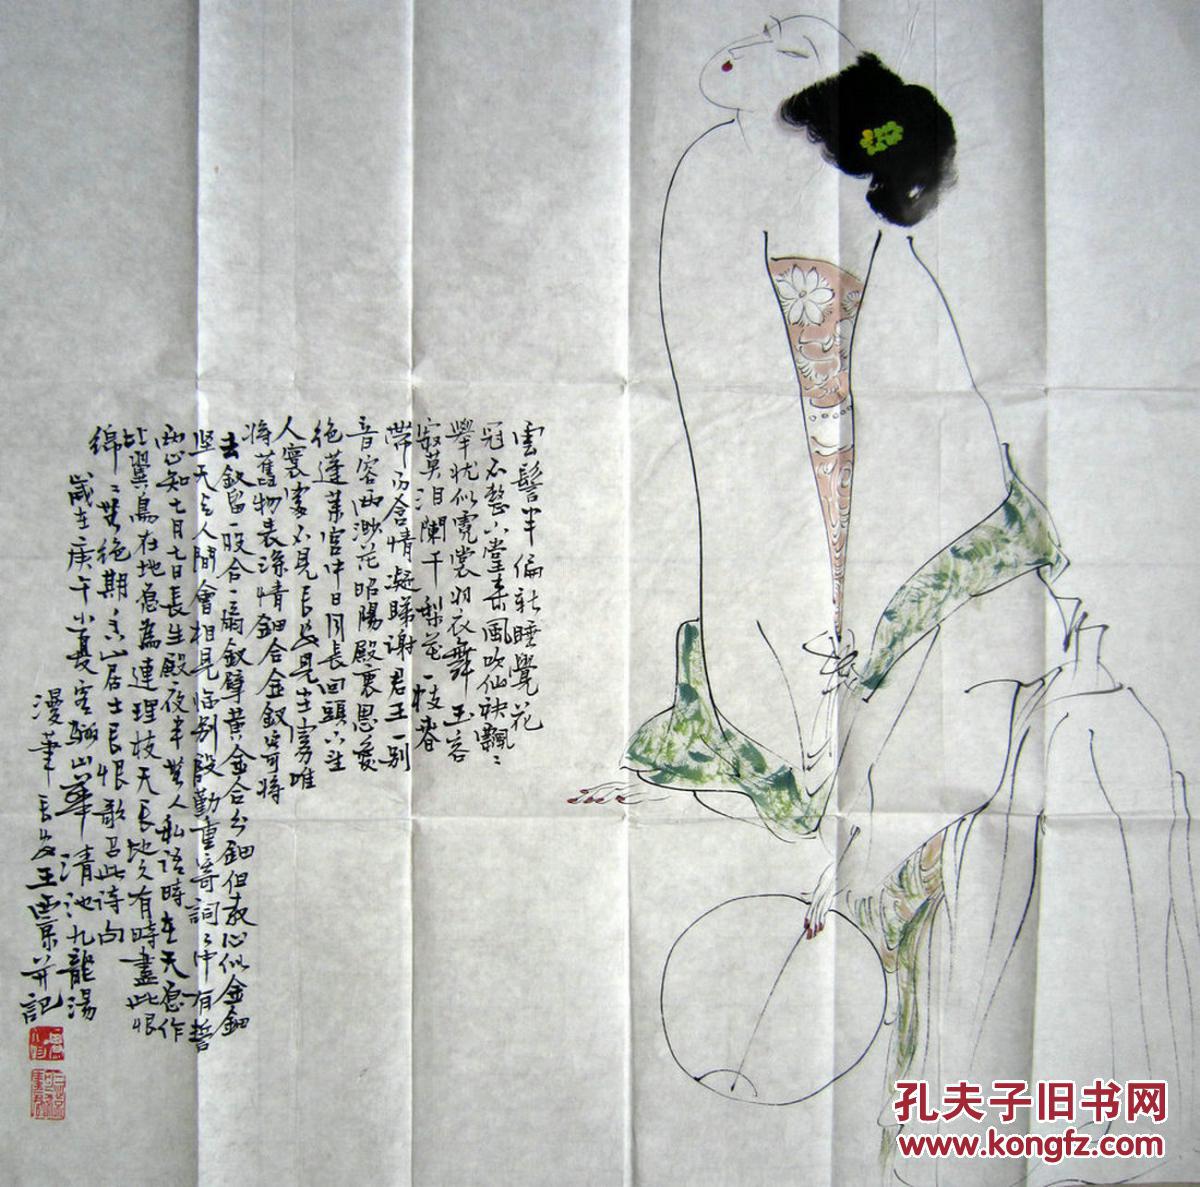 雲髻半偏新睡覺花
冠不整下堂来風吹仙袂飄〻
舉犹似霓裳羽衣舞玉容
寂莫泪闌干梨花一枝春
帶雨含情凝睇谢君王一别
音容两渺茫昭陽殿裏恩爱
绝蓬莱宫中日月长回頭下望
人寰處不見长安見尘雾唯
将舊物表深情钿合金釵寄将
去釵留一股合一扇釵擘黄金合分鈿但教心似金鈿
坚天上人間會相見临别殷勤重寄詞〻中有誓
两心知七月七日長生殿夜半無人私语時在天愿作
比翼鳥在地愿為連理枝天长地久有時盡此恨
綿〻無绝期香山居士长恨歌句此诗句
歲在庚午小夏客骊山華清池九龍湯
漫筆长安王西京并記
孔夫子旧书网
www.kongfz.com